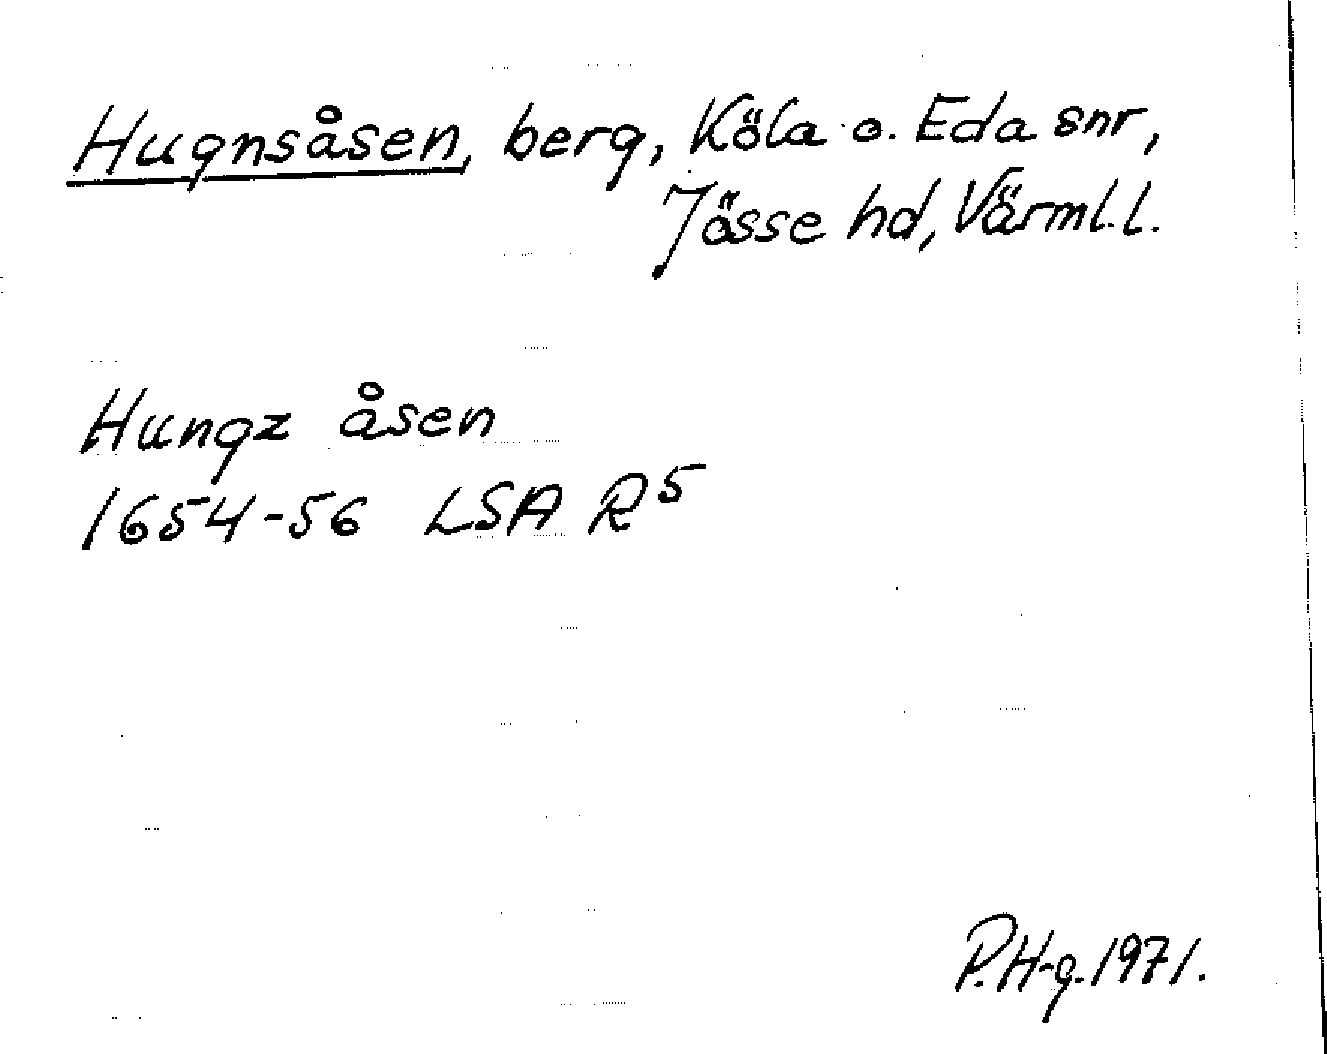 Hugnsåsen, berg, Köla o. Eda snr,
Jösse hd, Värml.l.
Hungz åsen
1654-56 LSA R5
P.H-g.1971.